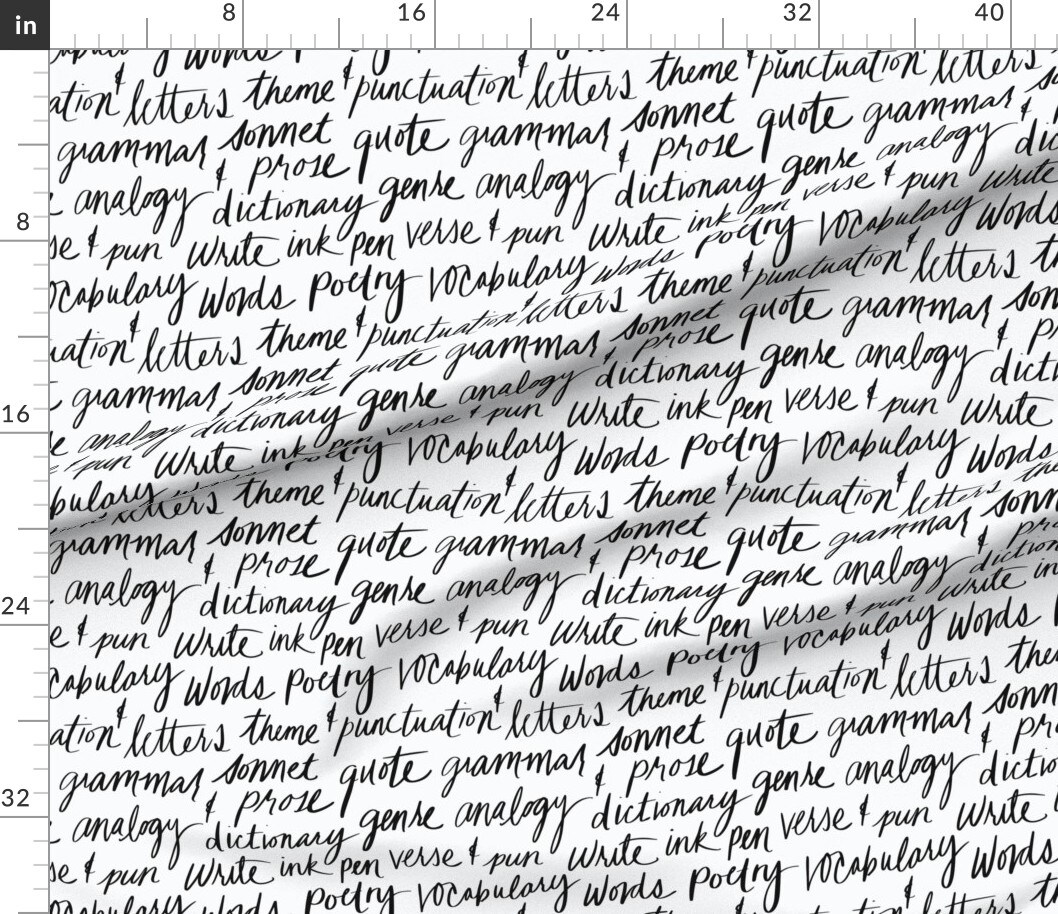 in 8 16 24 32 40
8
16
24
32
words
ation & letters theme & punctuation & letters theme & punctuation letters
grammar sonnet quote grammar sonnet quote grammar
& prose & prose &
analogy dictionary genre analogy dictionary genre analogy
se & pun write ink pen verse & pun write ink pen verse & pun write
vocabulary words poetry vocabulary words poetry vocabulary words
ation & letters theme & punctuation & letters theme & punctuation & letters
grammar sonnet quote grammar sonnet quote grammar
& prose & prose &
analogy dictionary genre analogy dictionary genre analogy
e & pun write ink pen verse & pun write ink pen verse & pun write
bulary words poetry vocabulary words poetry vocabulary words
letters theme & punctuation & letters theme & punctuation & letters
grammar sonnet quote grammar sonnet quote grammar
& prose & prose &
analogy dictionary genre analogy dictionary genre analogy
e & pun write ink pen verse & pun write ink pen verse & pun write
cabulary words poetry vocabulary words poetry vocabulary words
ation & letters theme & punctuation & letters theme & punctuation & letters
grammar sonnet quote grammar sonnet quote grammar
& prose & prose &
analogy dictionary genre analogy dictionary genre analogy
se & pun write ink pen verse & pun write ink pen verse & pun write
vocabulary words poetry vocabulary words poetry vocabulary words